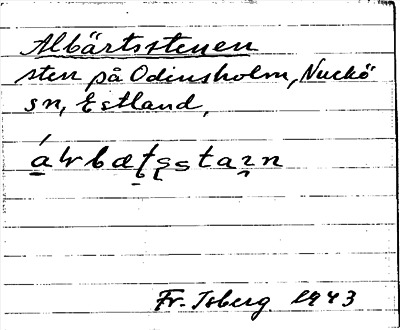 Albärtsstenen
sten på Odinsholm, Nuckö
sn, Estland,
Fr. Isberg 1943